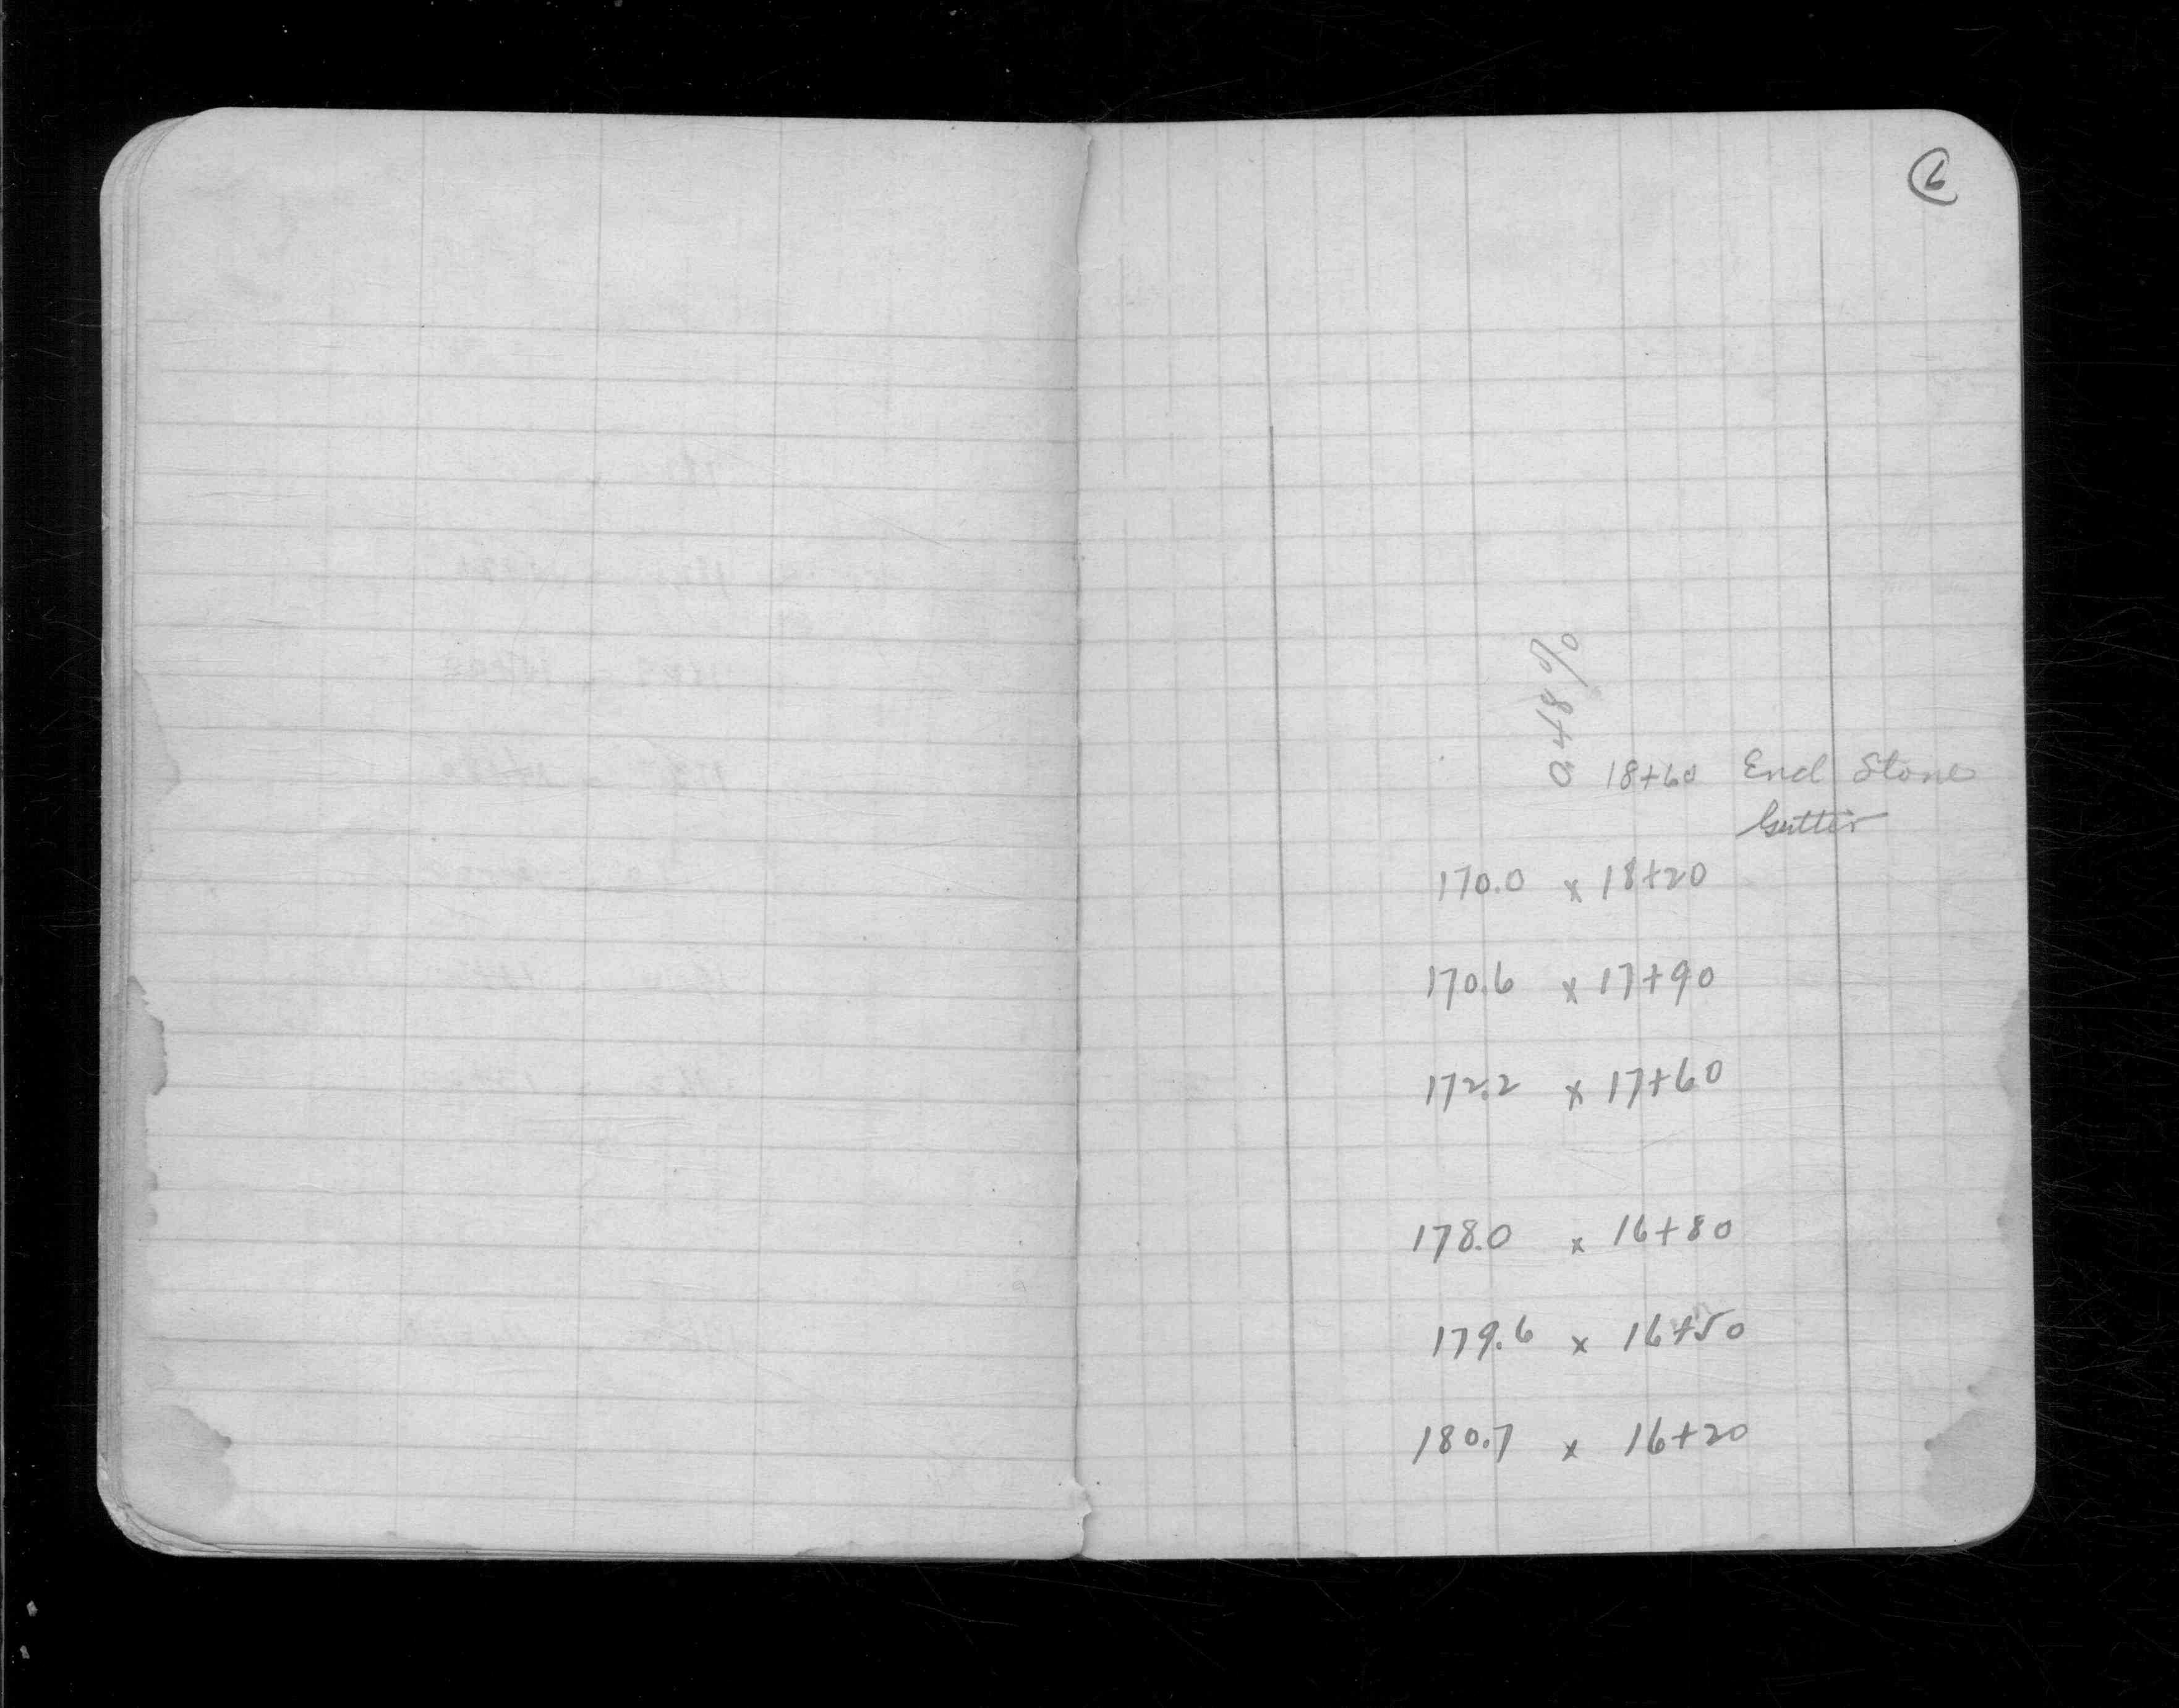 6
0.48%
18+60 End Stone
Gutter
170.0 x 18+20
170.6 x 17+90
172.2 x 17+60
178.0 x 16+80
179.6 x 16+50
180.7 x 16+20